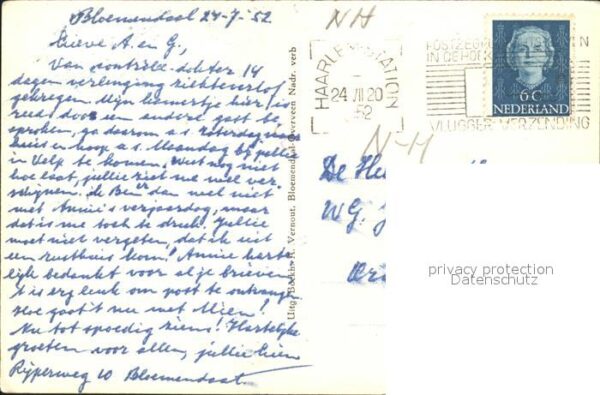 Bloemendaal 24-7-'52
Lieve A. en G.,
Van controle-dokter 14
dagen verlenging ziekteverlof
gekregen. Mijn kamertje hier is
reeds door een andere gast be-
sproken, ga daarom a.s. Zaterdag naar
huis en hoop a.s. Maandag bij jullie
in Velp te komen. Weet nog niet
hoe laat, jullie ziet me wel ver-
schijnen. Ik Ben er dan wel niet
met Annie's verjaardag, maar
dat is me toch te druk. Jullie
moet niet vergeten, dat ik uit
een rusthuis kom! Annie harte-
lijk bedankt voor al je brieven
't is erg leuk om post te ontvangen
Hoe gaat 't nu met Mien!
Nu tot spoedig ziens! Hartelijke
groeten voor allen, jullie Lien
Rijperweg 10 Bloemendaal.
Uitg. Boekh. H. Vermout, Bloemendaal-Overveen Nadr. verb
NH
HAARLEM-STATION
24 VII 20
52
IN DE HOEK
VLUGGER VERZENDING
6 C
NEDERLAND
N-H
De
W.G.
privacy protection
Datenschutz